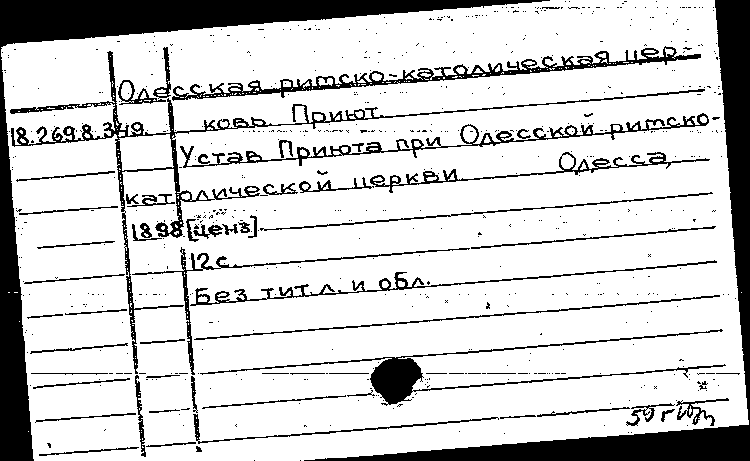 Одесская римско-католическая цер-
18.269.8.349. ковь. Приют.
Устав Приюта при Одесской римско-
католической церкви. Одесса,
1898 [ценз].
12 с.
Без тит. л. и обл.